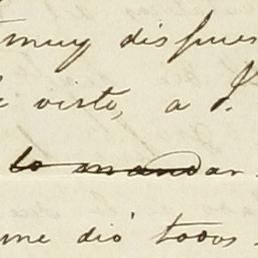 muy dispues
visto, a P.
lo mandar.
me dió todos